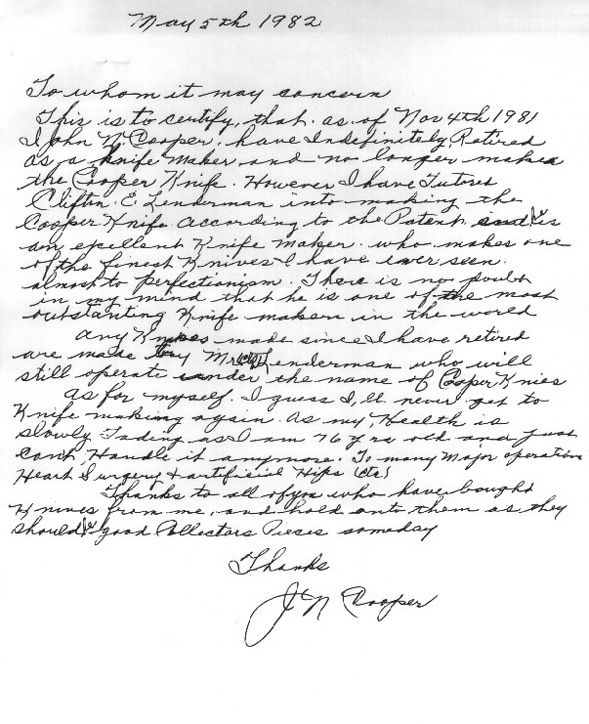 May 5th 1982
To whom it may concern
This is to certify, that as of Nov 4th 1981
I John N Cooper, have Indefinitely Retired
as a Knife Maker and no longer makes
the Cooper Knife. However I have Tutored
Clifton E. Lenderman into making the
Cooper Knife according to the Patent and is
an excellent Knife Maker. who makes one
of the finest Knives I have ever seen.
almost to perfectionism. There is no doubt
in my mind that he is one of the most
outstanting Knife makers in the world
any Knives made since I have retired
are made by Mr Lenderman who will
still operate under the name of Cooper Knies
As for myself. I guess I,ll never get to
Knife making again. As my, Health is
slowly Fading as I am 76 yrs old and just
can't Handle it anymore. To many Major operations
Heart Surgery & artificial Hips (etc)
Thanks to all of you who have bought
Knives from me, and hold onto them as they
should good Collectors Pieces someday
Thanks
J N Cooper